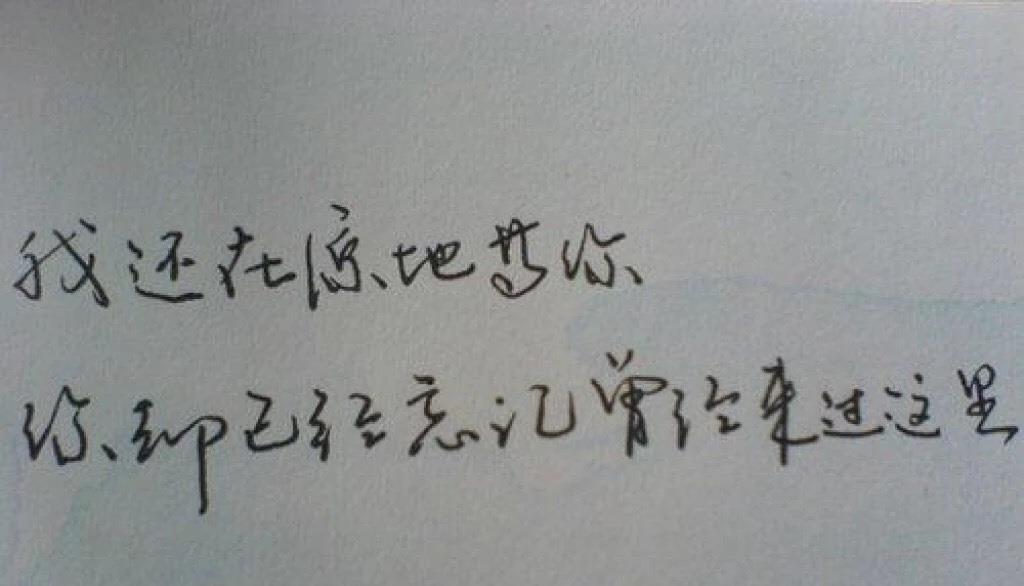 我还在原地等你
你却已经忘记曾经来过这里